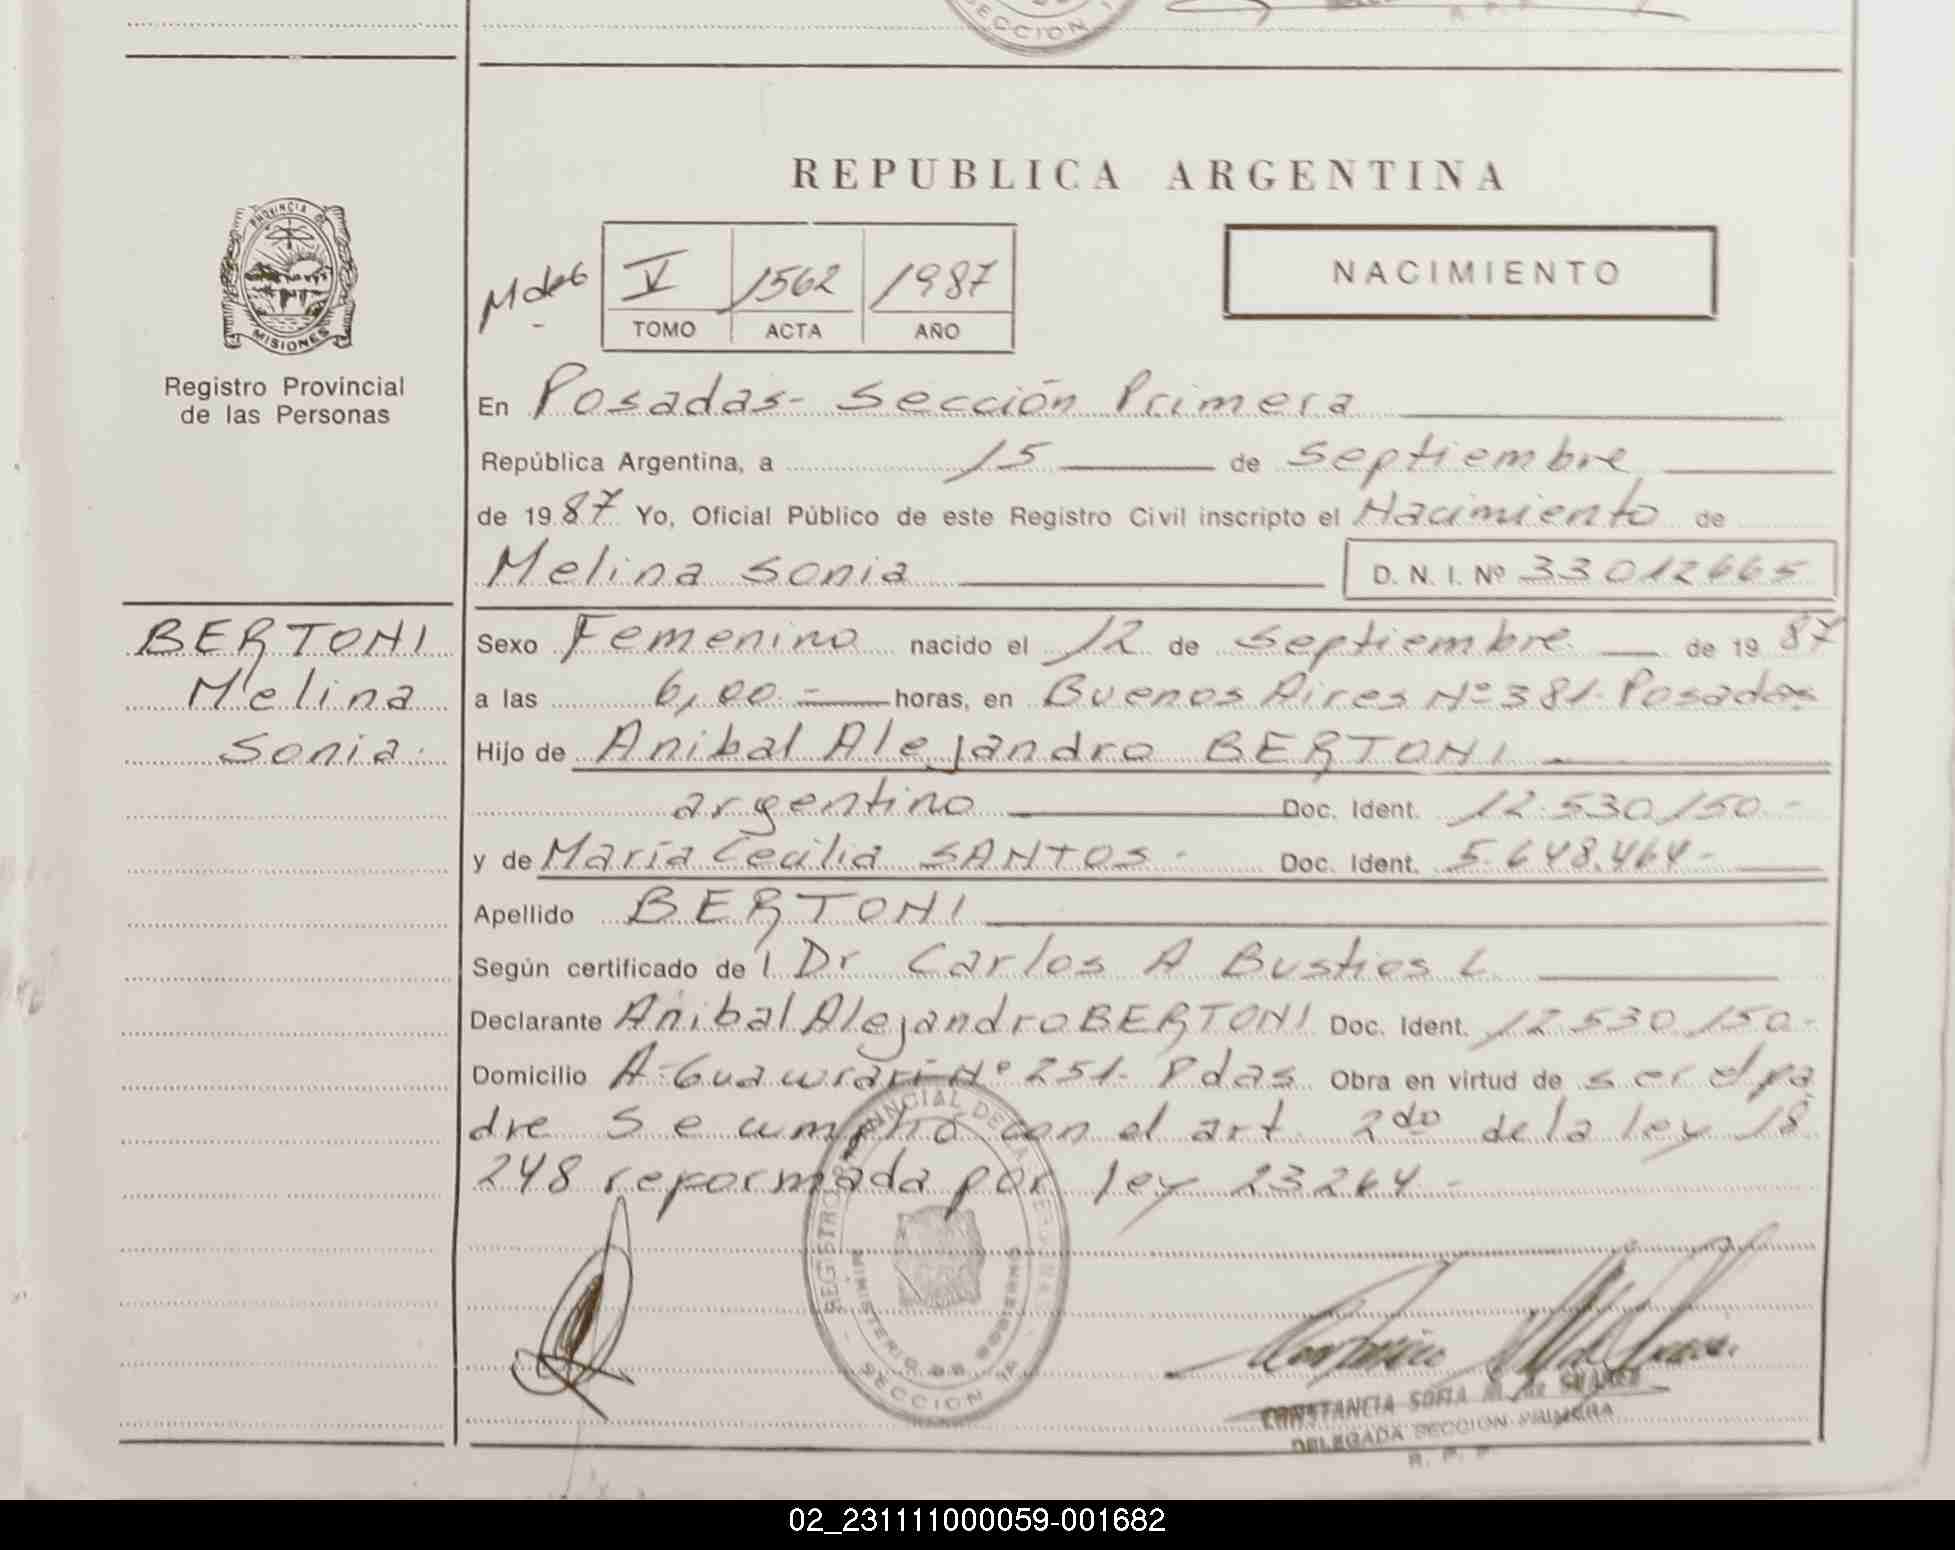 SECCION 1
REPUBLICA ARGENTINA
PROVINCIA DE
MISIONES
Registro Provincial
de las Personas
V 1562 1987
TOMO ACTA AÑO
NACIMIENTO
En Posadas - Sección Primera
República Argentina, a 15 de Septiembre
de 1987 Yo, Oficial Público de este Registro Civil inscripto el Nacimiento de
Melina Sonia D. N. I. Nº 33012665
BERTONI
Melina
Sonia.
Sexo Femenino nacido el 12 de Septiembre de 1987
a las 6,00.- horas, en Buenos Aires Nº 381. Posadas
Hijo de Anibal Alejandro BERTONI
argentino Doc. Ident. 12.530150.-
y de María Cecilia SANTOS - Doc. Ident. 5.648.464-
Apellido BERTONI
Según certificado de l Dr Carlos A Bustios L
Declarante Anibal Alejandro BERTONI Doc. Ident. 12.530.150.-
Domicilio A. Guawrari Nº 251. Pdas Obra en virtud de ser el pa
dre Se cumplió con el art. 2do de la ley 18
248 reformada por ley 23264-
REGISTRO PROVINCIAL DE LAS PERSONAS
MINISTERIO DE GOBIERNO
SECCION 1ª
CONSTANCIA SOFIA M. de SUAREZ
DELEGADA SECCION PRIMERA
R. P. P.
02_231111000059-001682